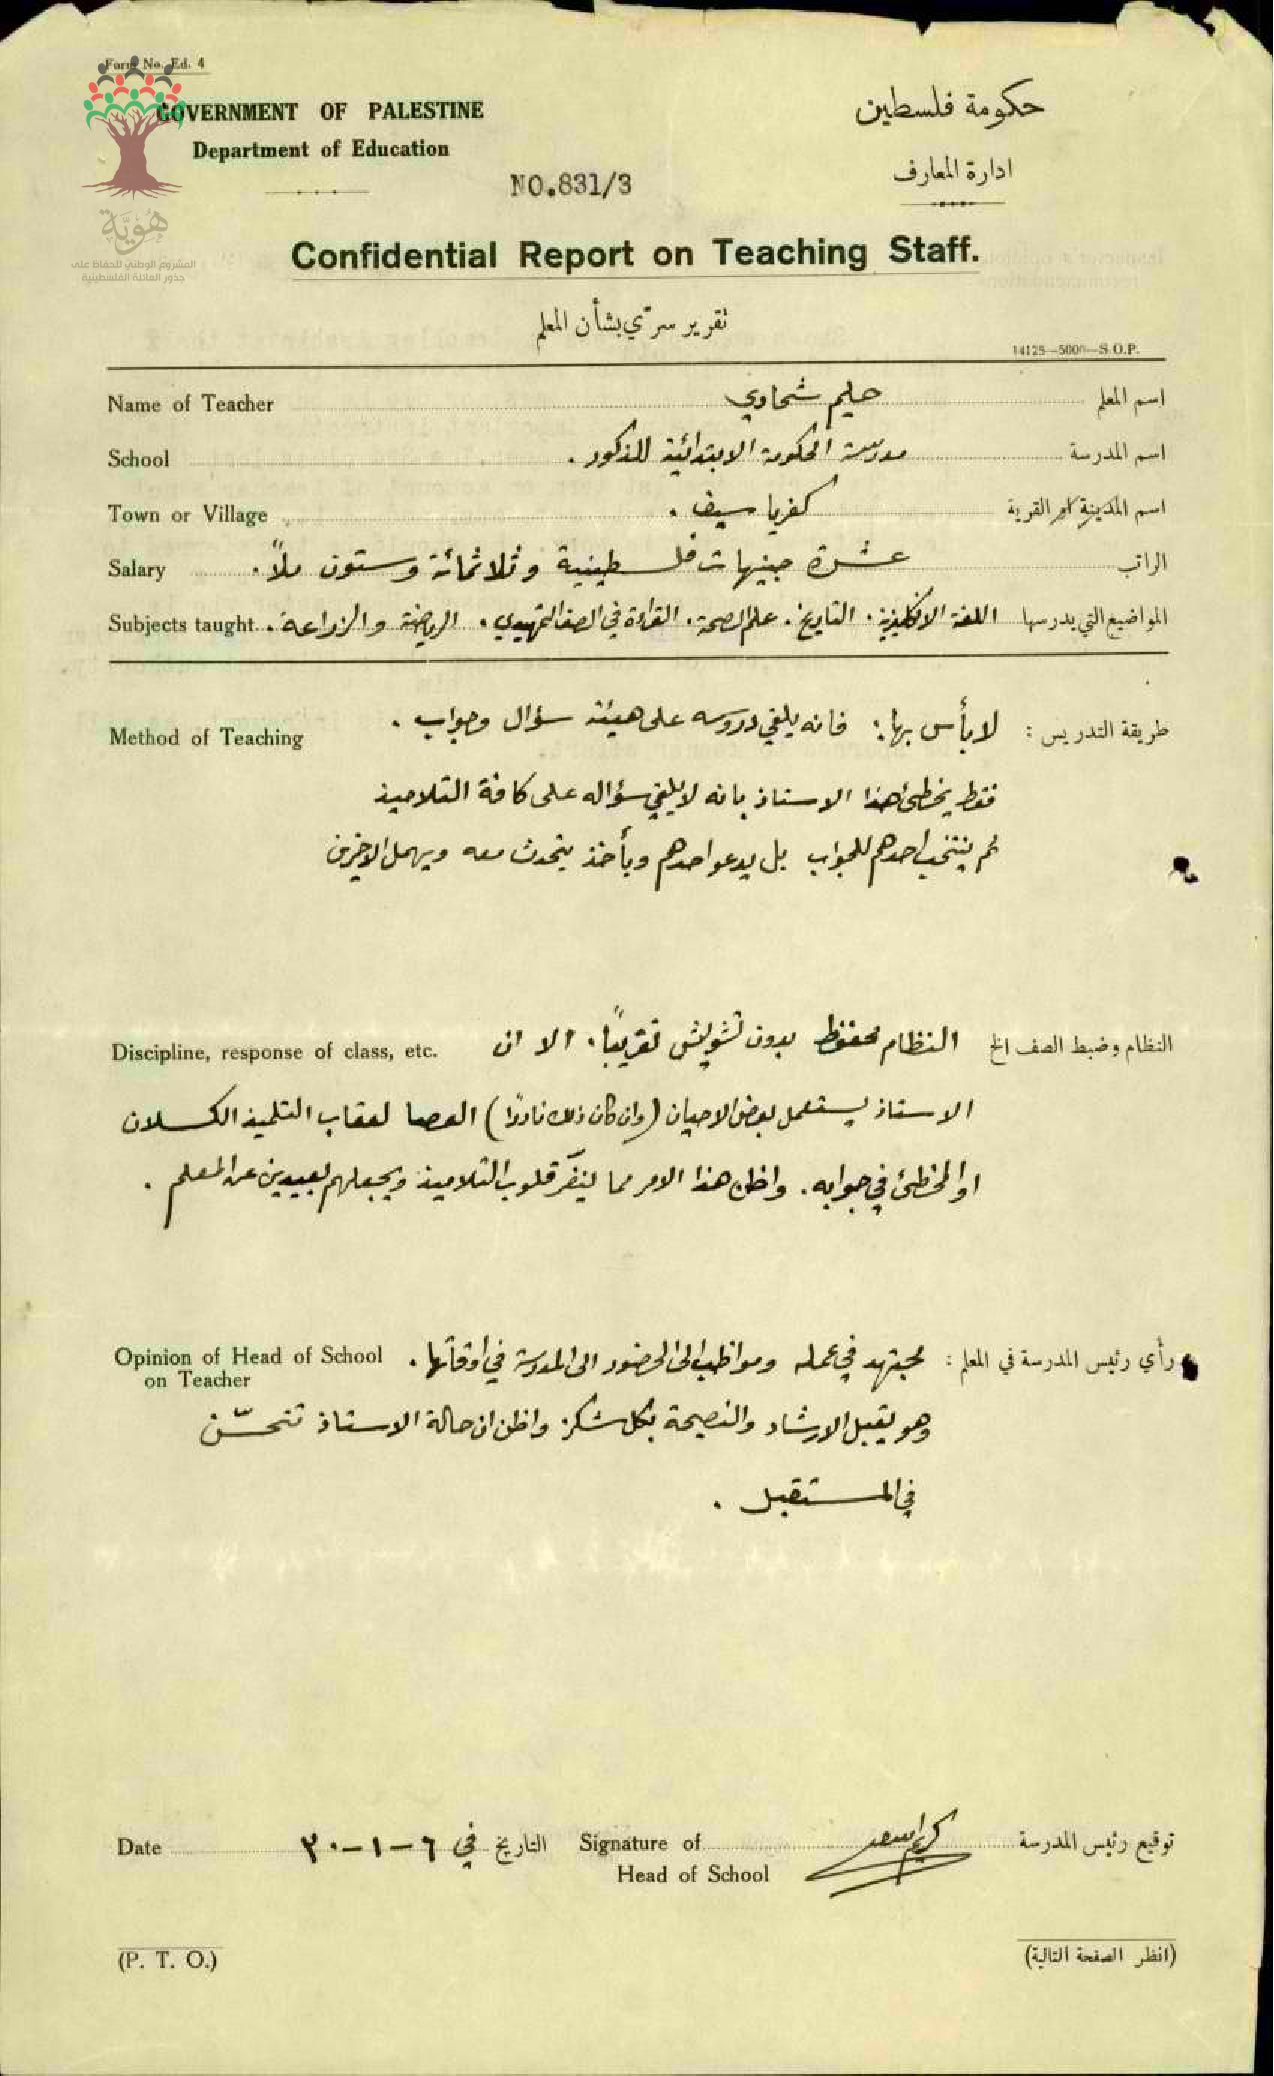 Form No. Ed. 4
GOVERNMENT OF PALESTINE
حكومة فلسطين
Department of Education
ادارة المعارف
NO.831/3
هُوِيَّة
المشروع الوطني للحفاظ على
جذور العائلة الفلسطينية
Confidential Report on Teaching Staff.
تقرير سري بشأن المعلم
14125—5000—S.O.P.
Name of Teacher حليم شحاوي اسم المعلم
School مدرسة الحكومة الابتدائية للذكور . اسم المدرسة
Town or Village كفرياسيف . اسم المدينة او القرية
Salary عشرة جنيهات فلسطينية وثلاثمائة وستون ملاً . الراتب
Subjects taught اللغة الانكليزية . التاريخ . علم الصحة . القراءة في الصف التمهيدي . الرياضة والزراعة . المواضيع التي يدرسها
Method of Teaching
طريقة التدريس : لا بأس بها : فانه يلقي دروسه على هيئة سؤال وجواب .
فقط يخطئ هذا الاستاذ بانه لا يلقي سؤاله على كافة التلاميذ
ثم ينتخب احدهم للجواب بل يدعو احدهم ويأخذ يتحدث معه ويهمل الاخرين
Discipline, response of class, etc.
النظام وضبط الصف الخ النظام محفوظ بدون تشويش تقريباً . الا ان
الاستاذ يستعمل بعض الاحيان (وان كان ذلك نادرًا) العصا لعقاب التلميذ الكسلان
او المخطئ في جوابه . واظن هذا الامر مما ينفّر قلوب التلاميذ ويجعلهم بعيدين عن المعلم .
Opinion of Head of School
on Teacher
رأي رئيس المدرسة في المعلم : مجتهد في عمله ومواظب الى الحضور الى المدرسة في اوقاتها .
وهو يقبل الارشاد والنصيحة بكل شكر واظن ان حالة الاستاذ تتحسّن
في المستقبل .
Date في ٦-١-٣٠ التاريخ
Signature of
Head of School
توقيع رئيس المدرسة
(P. T. O.)
(انظر الصفحة التالية)